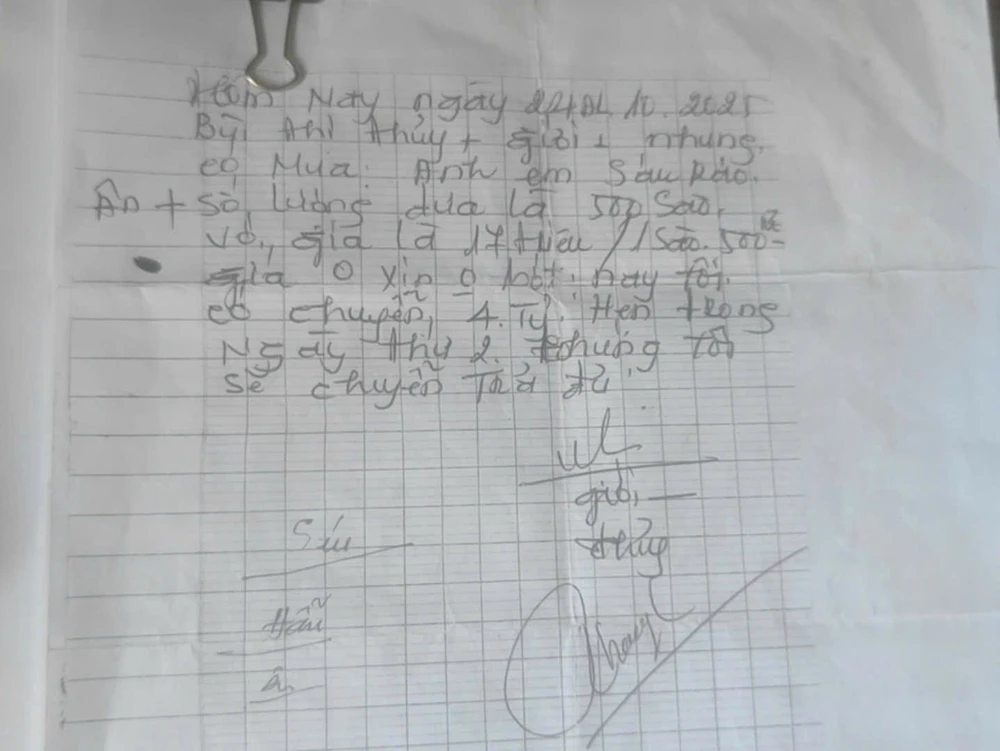 Hôm Nay ngày 24 DL 10. 2025
Bùi thi thủy + giỏi + nhung.
có Mua. Anh em Sáu Ráo.
Ân + số, lượng dưa là 500 Sào.
Vớ, giá là 17 triệu / 1 Sào. 500
giá 0 xin 0 bớt. nay tôi.
có chuyển, 4. Tỷ. Hẹn trong
Ngày thứ 2. chúng tôi
sẽ chuyển Trả đủ
giỏi
thủy
Sáu
Hẫu
ân
nhung